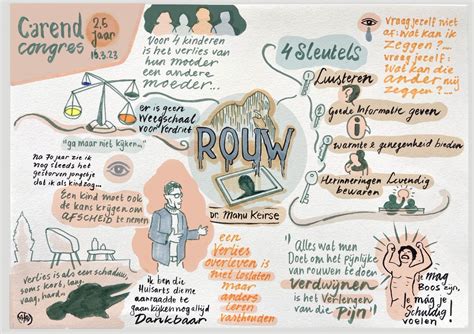 Carend
congres
2,5
jaar
16.3.23
Voor 4 kinderen
is het verlies van
hun moeder
een andere
moeder...
4 Sleutels
Vraag jezelf niet
af: wat kan ik
zeggen?...
vraag jezelf:
wat kan die
ander mij
zeggen?...
Luisteren
Goede informatie geven
warmte & genegenheid bieden
Herinneringen Levendig
bewaren
er is geen
Weegschaal
voor verdriet
"ga maar niet kijken..."
na 70 jaar zie ik
nog steeds het
gestorven jongetje
dat ik als kind zag...
Een kind moet ook
de kans krijgen om
AFSCHEID te nemen
ROUW
Dr. Manu Keirse
Verlies is als een schaduw,
soms kort, lang,
vaag, hard...
ik ben die
Huisarts die me
aanraadde te
gaan kijken nog altijd
Dankbaar
een
Verlies
overleven is
niet loslaten
maar
anders
leren
vasthouden
"Alles wat men
Doet om het pijnlijke
van rouwen te doen
verdwijnen
is het verlengen
van die
Pijn"
Je mag
Boos zijn,
Je mag je
schuldig
voelen!